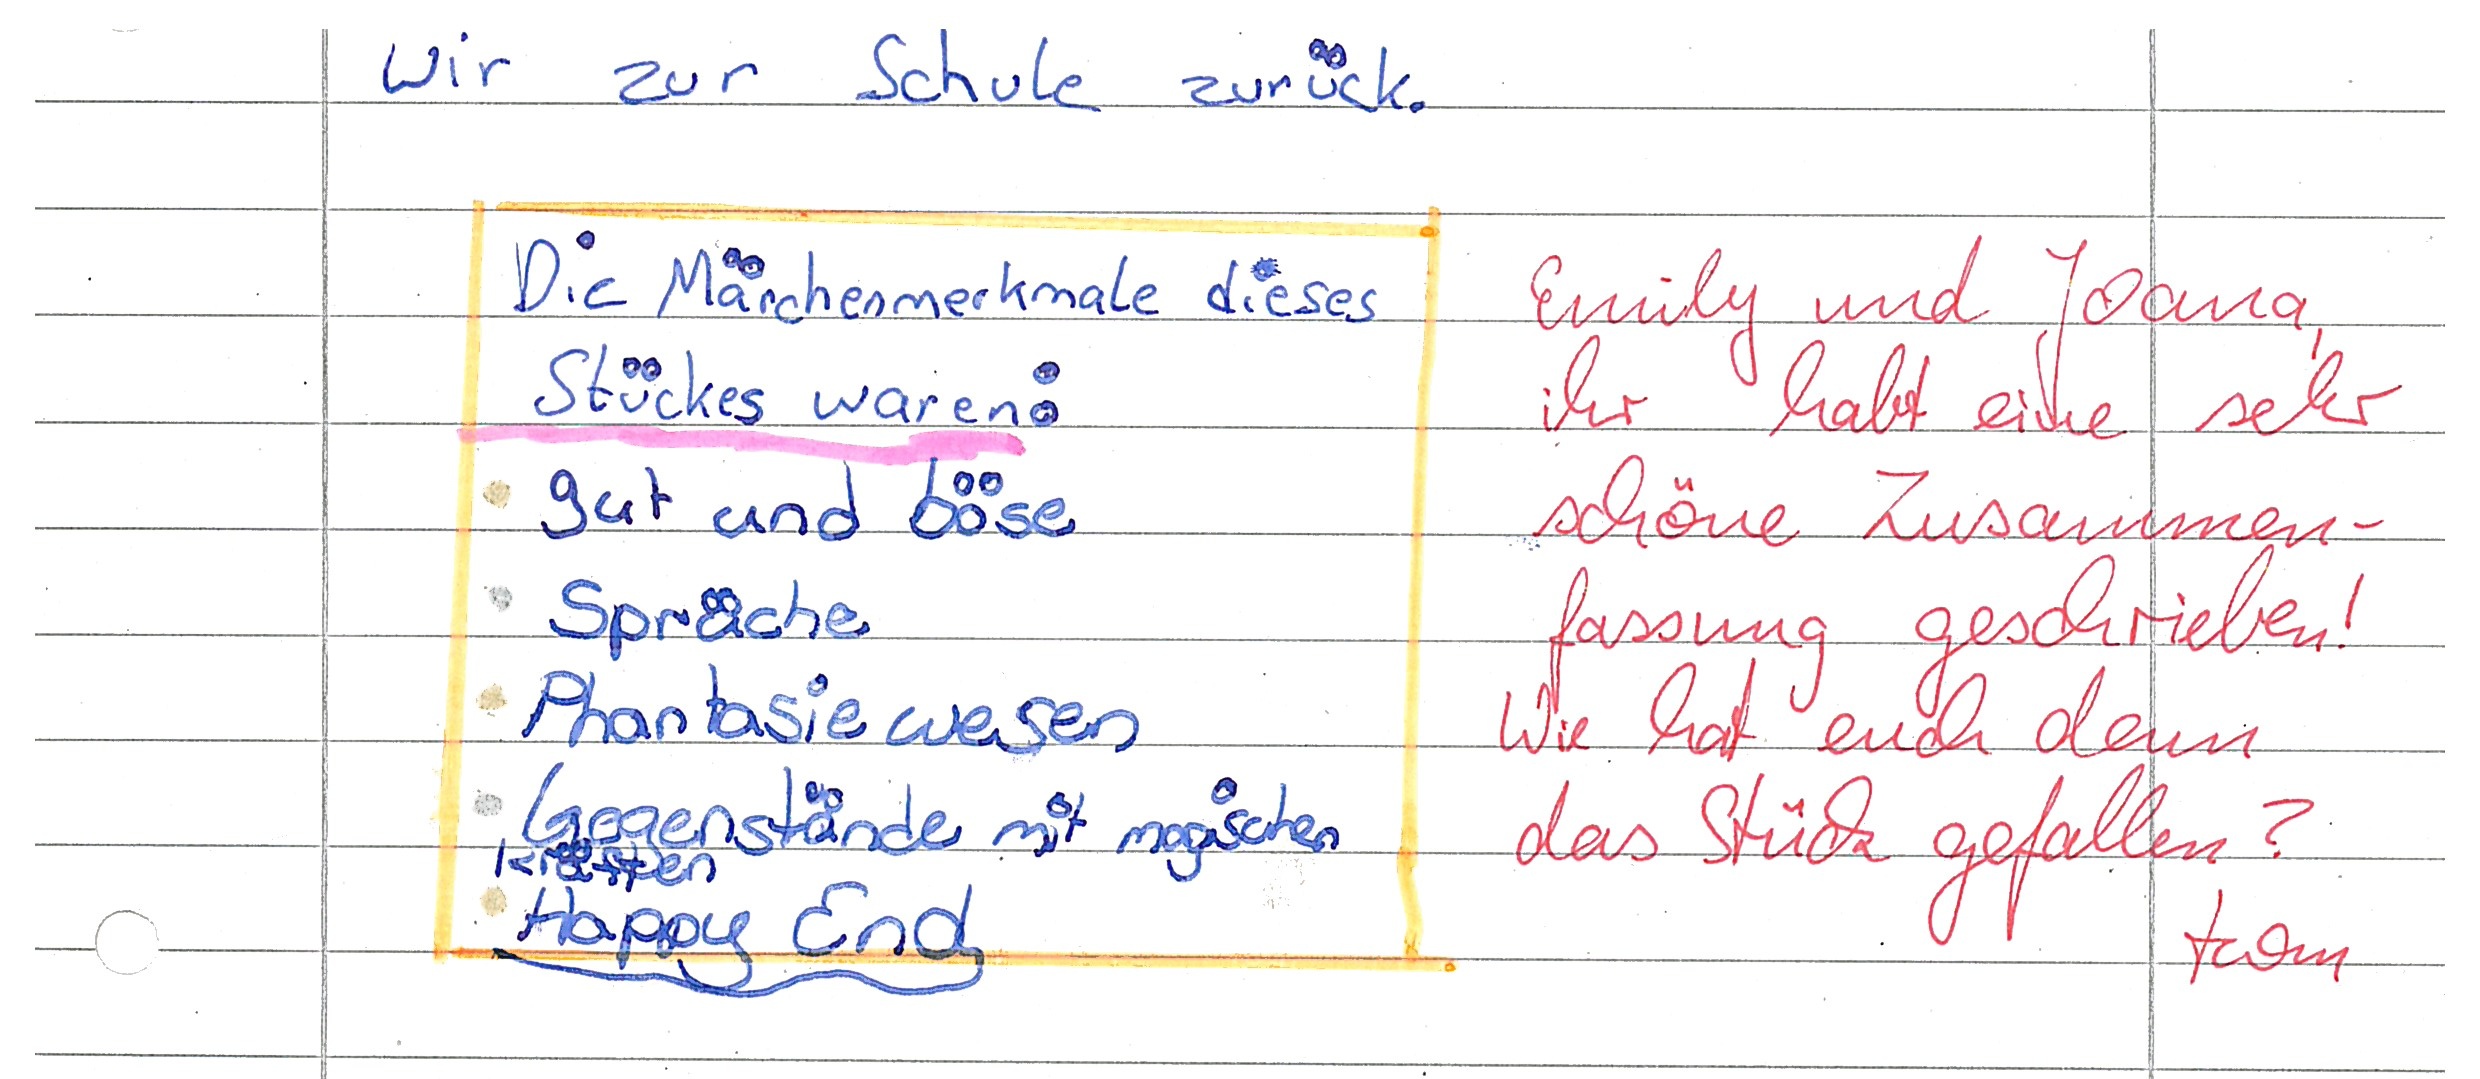 wir zur Schule zurück.
Die Märchenmerkmale dieses
Stückes waren:
• gut und böse
• Spräche
• Phantasiewesen
• Gegenstände mit magischen
kräften
• Happy End
Emily und Joana,
ihr habt eine sehr
schöne Zusammen-
fassung geschrieben!
Wie hat euch denn
das Stück gefallen?